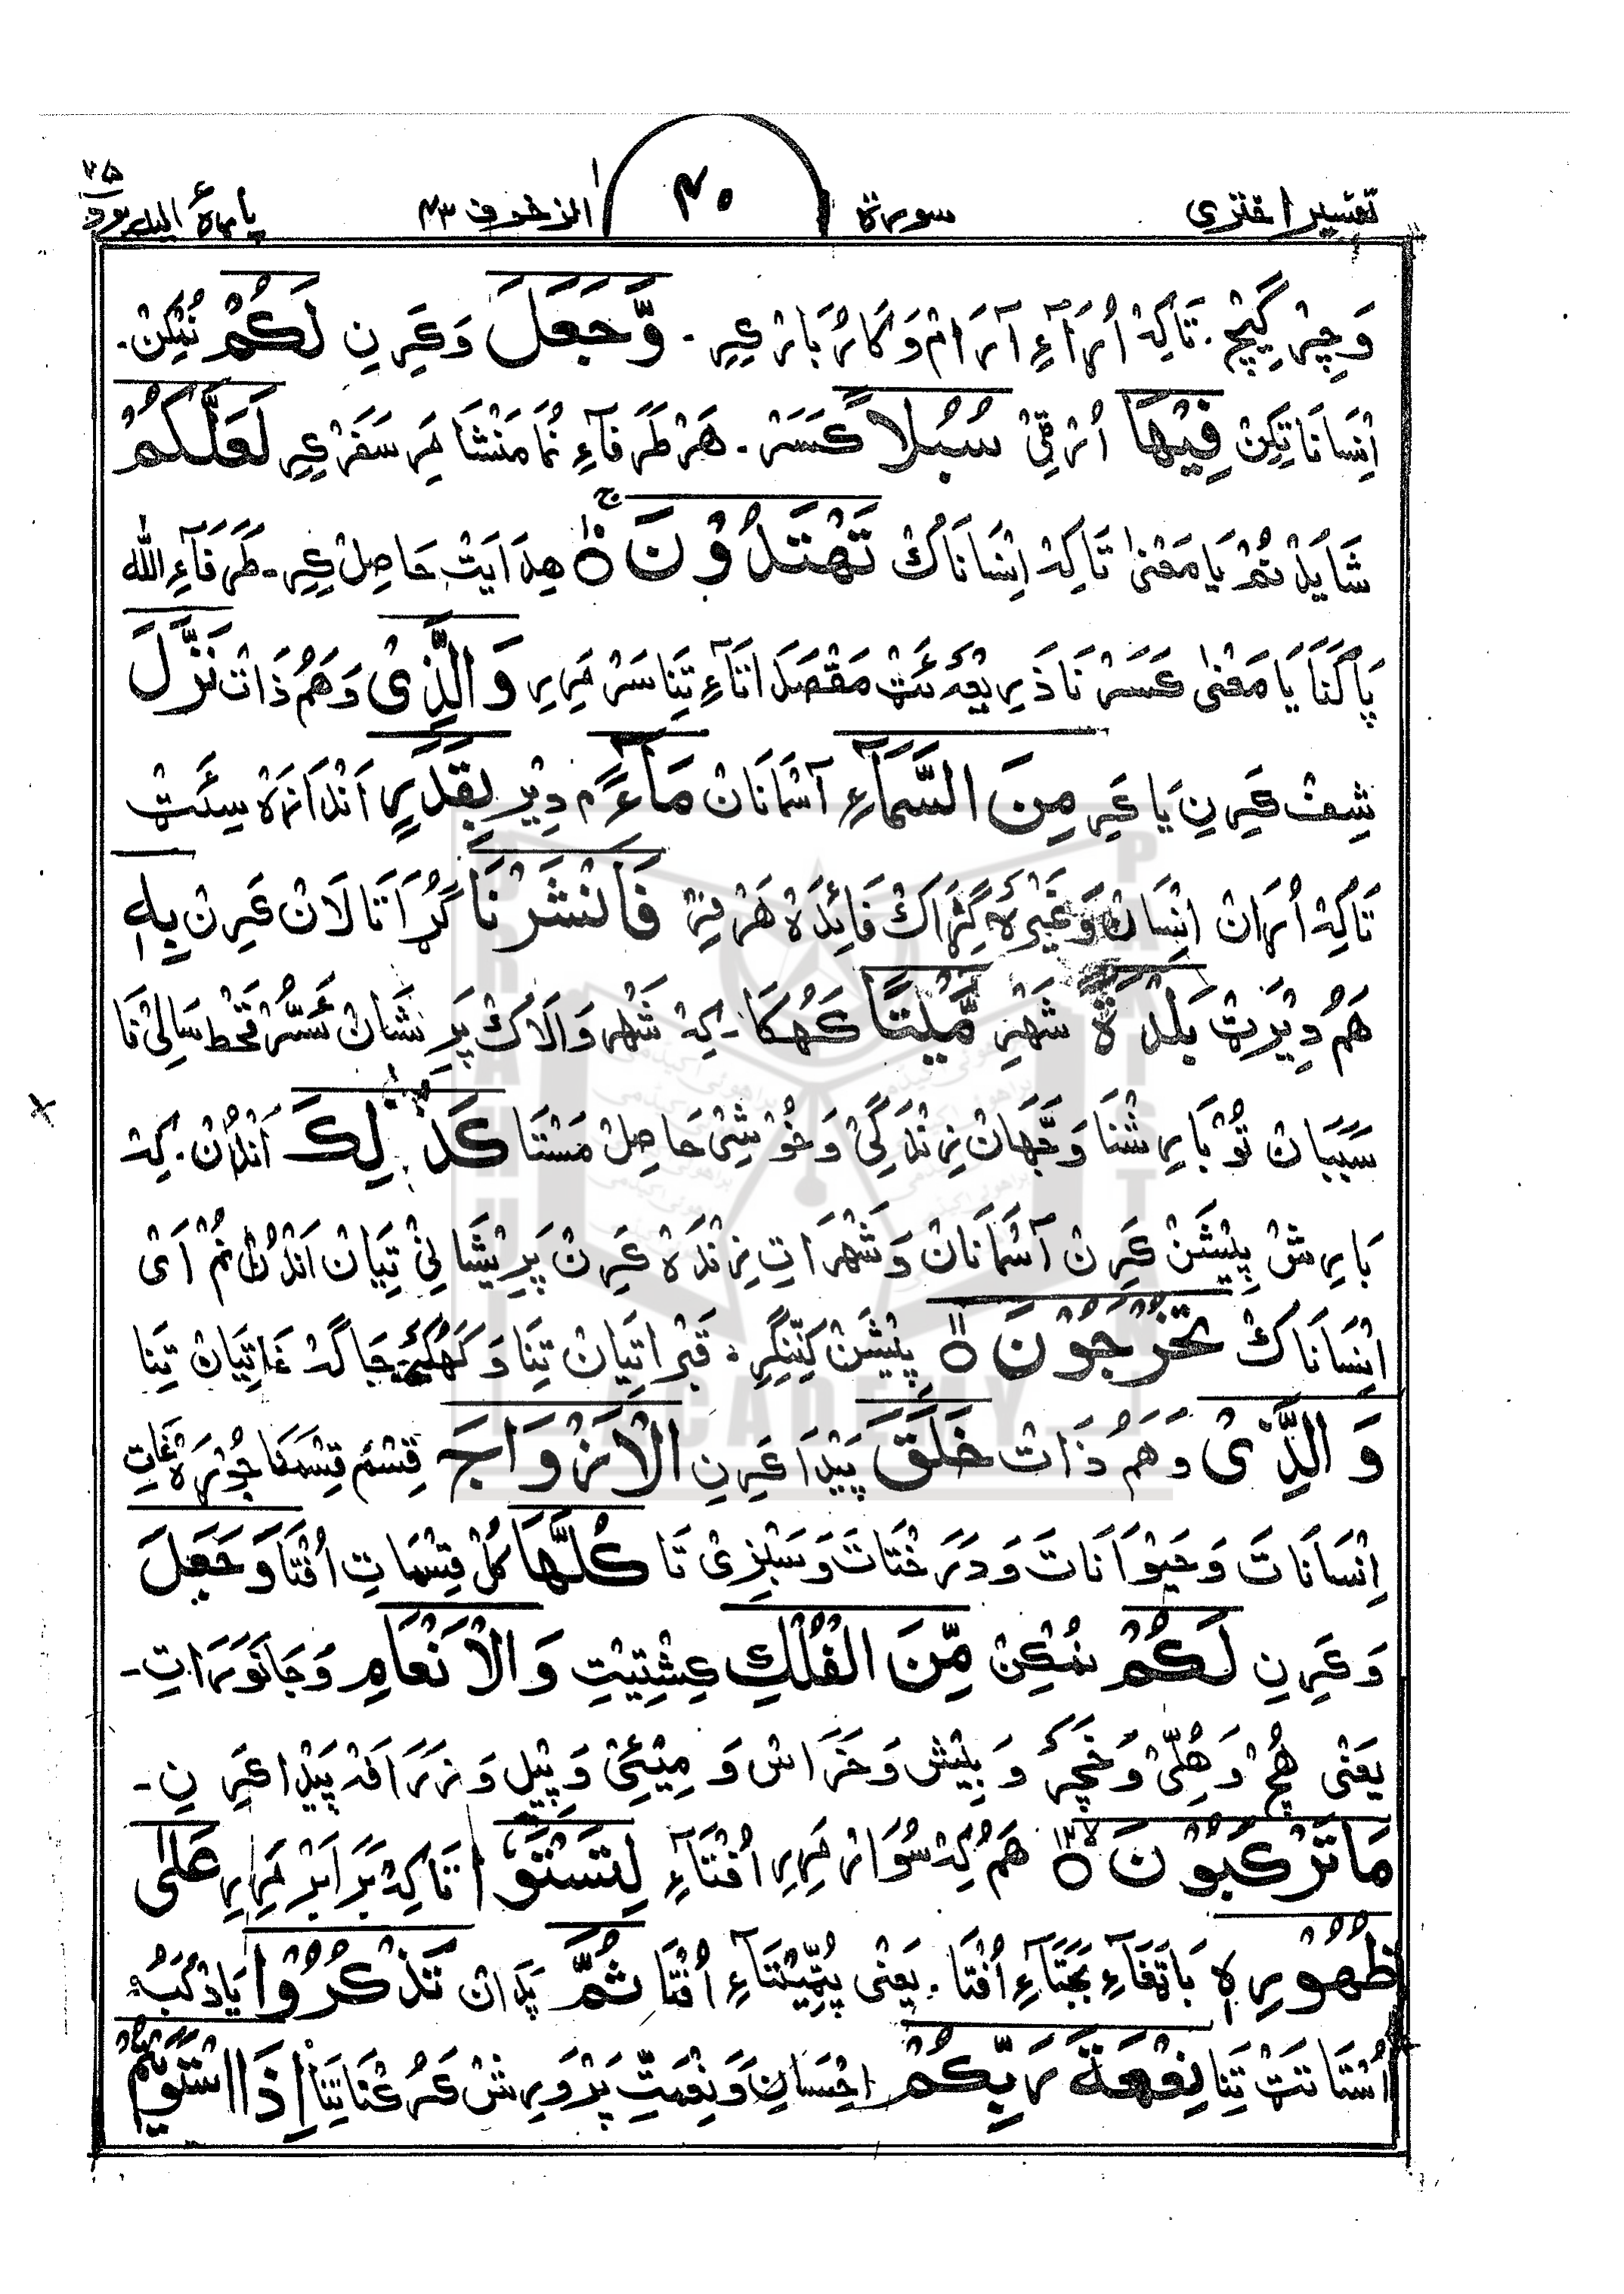 تفسیر اختری سورة ۴۰ الزخرف ۴۳ پارۀ الیہ یرد ۲۵
وَچِرْگِیچْ۔ تَاکِہْ اُرَاءِ آرَامْ وَکَارُبَارْ کِرِ۔ وَّجَعَلَ وَکَرِنِ لَکُمْ نُمْکِنْ۔
اِنْسَانَاتِکِنْ فِیْهَا اُرْٹِیْ سُبُلًا کَسَرْ۔ هَرْطَرَفَاءِ نُمَا مَنْشَا مَرِ سَفَرْکِرِ لَعَلَّکُمْ
شَایَدْ نُمْ یَا مَعْنٰی تَاکِہْ اِنْسَانَاکْ تَهْتَدُوْنَ ۱۰ هِدَایَتْ حَاصِلْ کِرِ۔ طَرَفَاءِ اللّٰہ
پَاکَنَا یَا مَعْنٰی کَسَرْنَا ذَرِیْعَہ ئَتْ مَقْصَدَاتَاءِ تِنَا سَرْ مَرِرِ وَالَّذِیْ وَهَمُ ذَاتْ نَزَّلَ
شِفْ کَرِنِ یَا کَرِ مِنَ السَّمَآءِ آسْمَانَانْ مَآءًۢ دِیْرِ بِقَدَرٍ اَنْدَازَہْ سِئَتْ
تَاکِہْ اُرَانْ اِنْسَانْ وَغَیْرَہ گِڑَاکْ فَائِدَہْ هَرْفِرْ فَاَنْشَرْنَا گُڑَا تَالَانْ کَرِنْ بِهٖ
هَمُ دِیْرَتْ بَلْدَةً شَهْرِ مَّیْتًا کَهُکَا۔ کِہْ شَهْر وَالَاکْ پَرِنْشَانْ ئَسُّرْ قَحْط سَالِیْ نَا
سَبَبَانْ تُوْ بَارِشْنَا وَجَهَانْ زِنْدَگِیْ وَخُوْشِیْ حَاصِلْ مَسْنَا کَذٰلِکَ اَنْدُنْ۔ کِہْ
بَارِشْ پِیْشَنْ کَرِنْ آسْمَانَانْ وَشَهْرَاتِ زِنْدَہْ کَرِنْ پَرِیْشَانِیْ تِیَانْ اَنْدُنْ نُمْ اَیْ
اِنْسَانَاکْ تُخْرَجُوْنَ ۱۱ پِیْشَنْ کِنِّنْگِرِ۔ قَبْرَاتِیَانْ تِنَا وَکَهْکِئِ جَاگَہ غَاتِیَانْ تِنَا
وَالَّذِیْ وَهَمُ ذَاتْ خَلَقَ پَیْدَا کَرِنِ الْاَزْوَاجَ قِسْمْ قِسْمَنَا جُوْڑَہ غَاتِ
اِنْسَانَاتَ وَحَیْوَانَاتَ وَدَرَخْتَاتَ وَسَبْزِیْ تَا کُلَّهَا کُلْ قِسْمَاتِ اُفْتَا وَجَعَلَ
وَکَرِنِ لَکُمْ نُمْکِنْ مِّنَ الْفُلْكِ کِشْتِیْتِ وَالْاَنْعَامِ وَجَانْوَرَاتِ۔
یَعْنٰی هُچْ وَهُلِّیْ وَخَچَرْ وَبِیْشْ وَخَرَاسْ وَمِیْئِیْ وَپِیْلِ وَزَرَافَہْ پَیْدَا کَرِنِ۔
مَا تَرْکَبُوْنَ ۱۲ هَمُ کِہْ سُوَارْ مَرِرِ اُفْتَاءِ لِتَسْتَوٗا تَاکِہْ بَرَابَرْ مَرِرِ عَلٰی
ظُهُوْرِهٖ بَاتِغَاءِ بُجَّتَاءِ اُفْتَا۔ یَعْنٰی پُٹِّیْتَاءِ اُفْتَا ثُمَّ پَدَانْ تَذْکُرُوْا یَادْکَبُ
اُسْتَاتَتْ تِنَا نِعْمَةَ رَبِّکُمْ اِحْسَانِ وَنِعْمَتِ پَرْوَرِشْ کَرُکْنَا تِنَا اِذَا اسْتَوَیْتُمْ